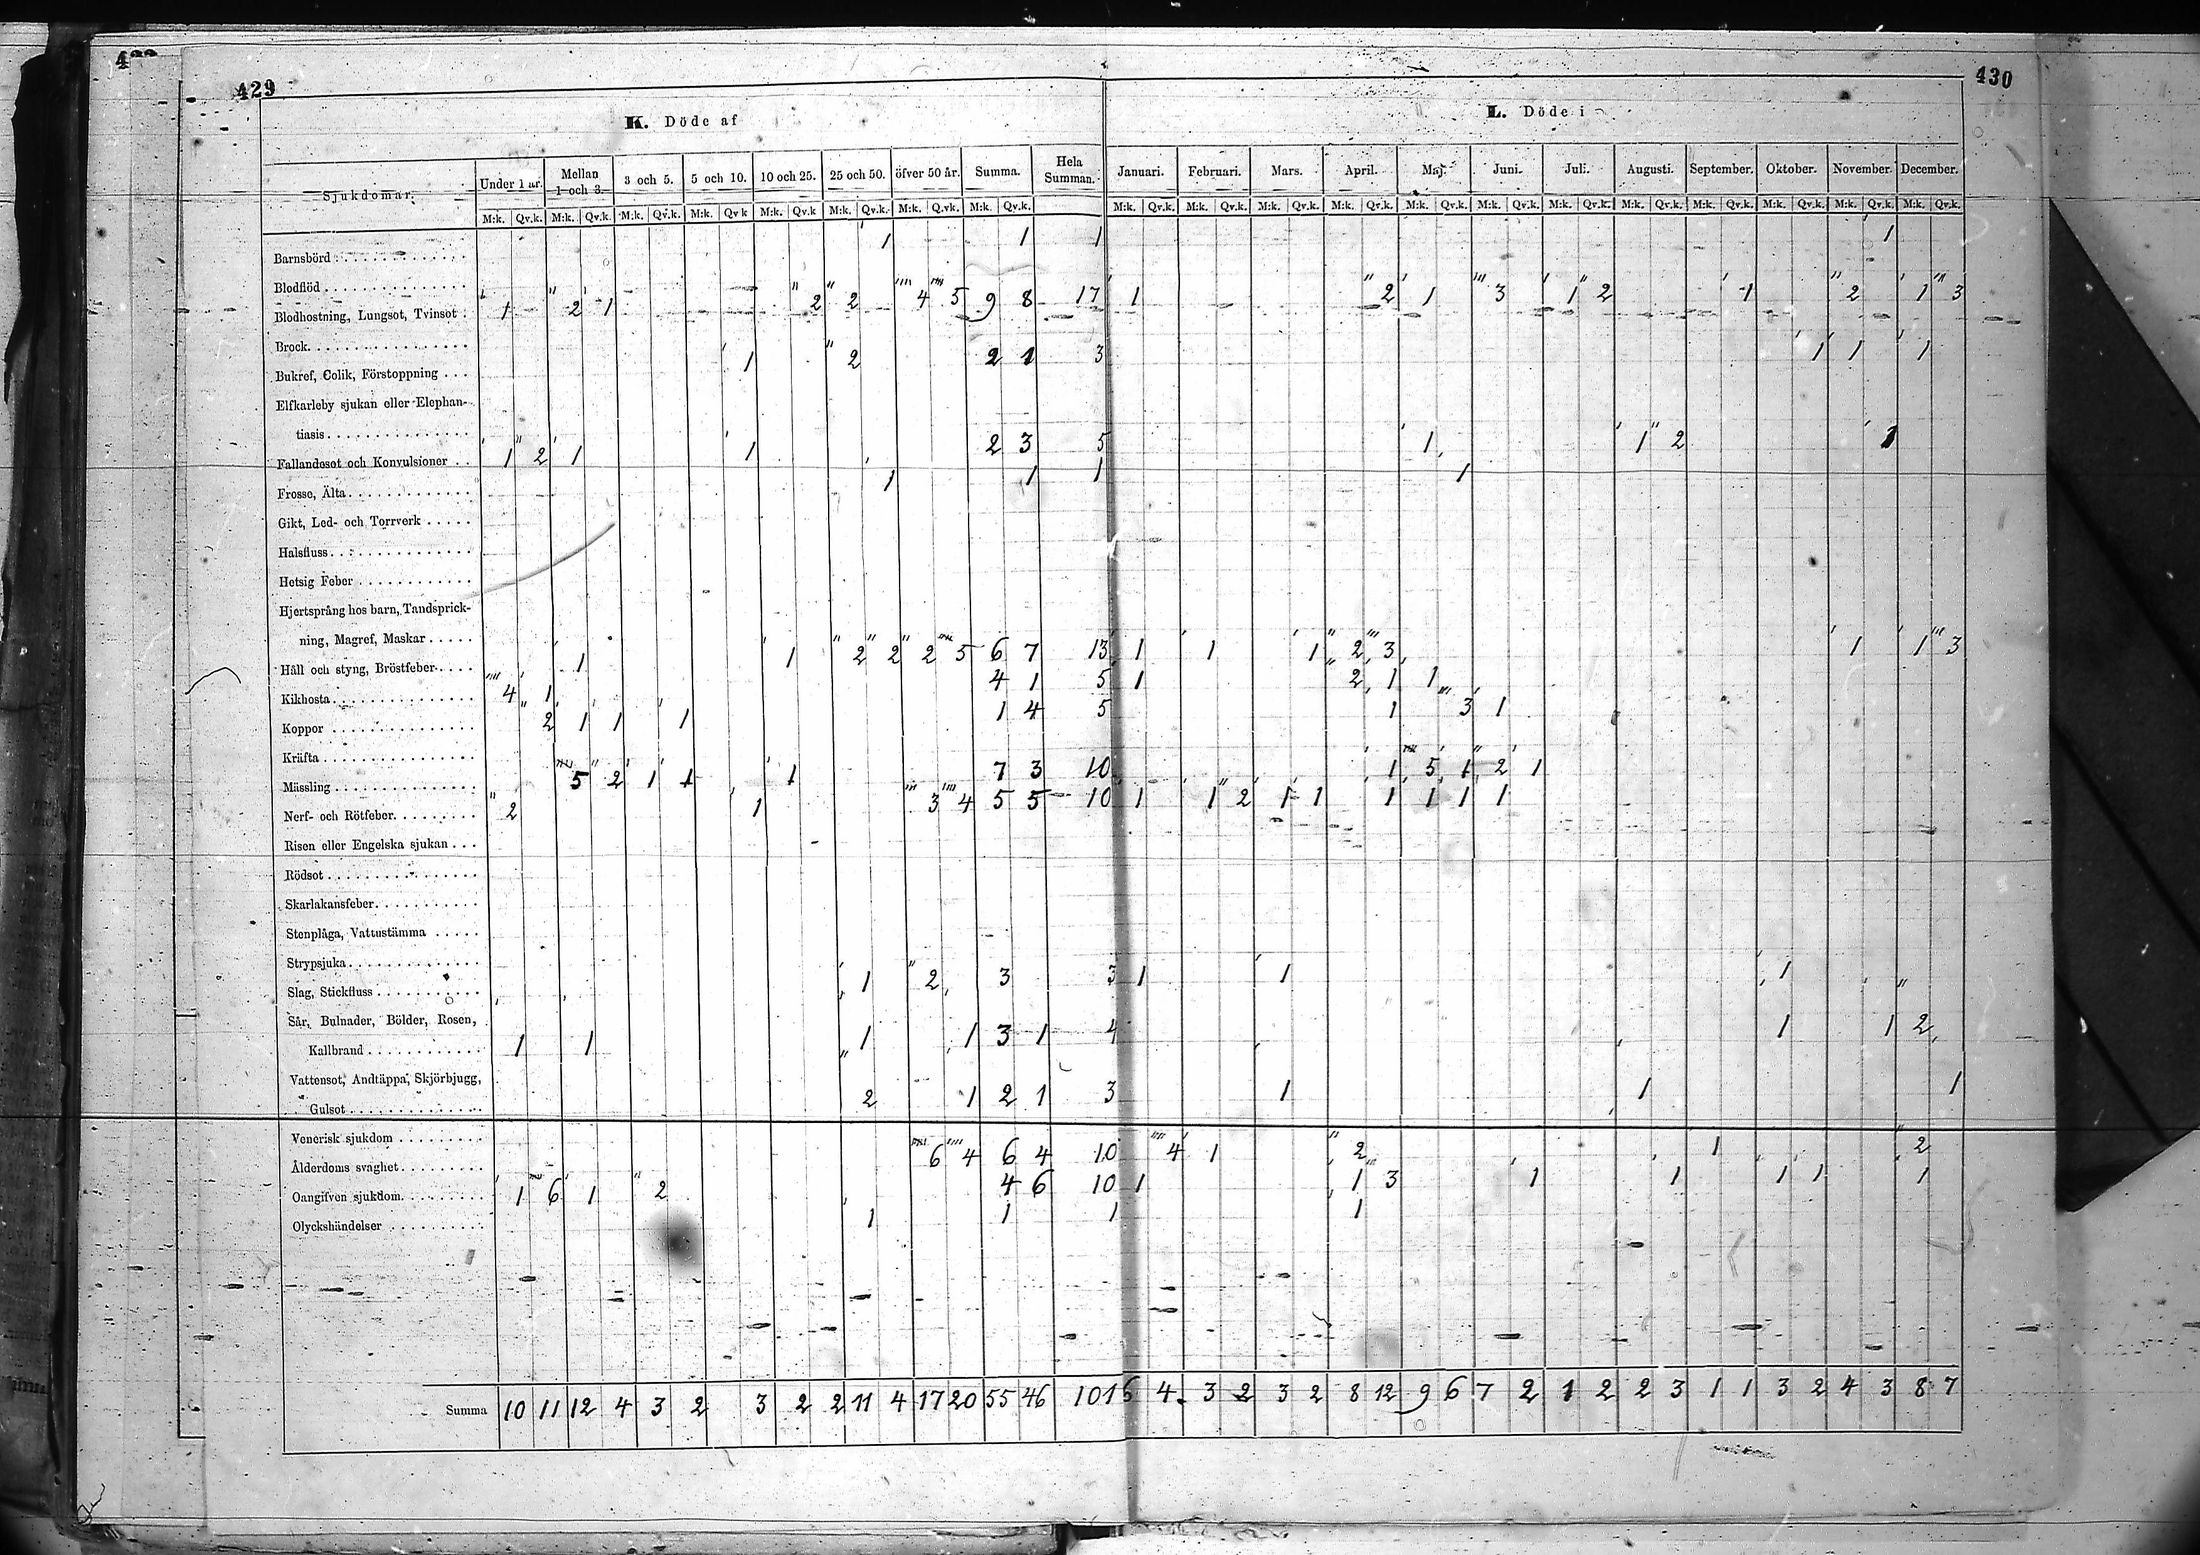 429
430
K. Döde af
L. Döde i
Sjukdomar. Under 1 år. Mellan 1 och 3. 3 och 5. 5 och 10. 10 och 25. 25 och 50. öfver 50 år. Summa. Hela Summan. Januari. Februari. Mars. April. Maj. Juni. Juli. Augusti. September. Oktober. November. December.
M:k. Qv.k. M:k. Qv.k. M:k. Qv.k. M:k. Qv.k M:k. Qv.k M:k. Qv.k. M:k. Qv.k. M:k. Qv.k. M:k. Qv.k. M:k. Qv.k. M:k. Qv.k. M:k. Qv.k. M:k. Qv.k. M:k. Qv.k. M:k. Qv.k. M:k. Qv.k. M:k. Qv.k. M:k. Qv.k. M:k. Qv.k. M:k. Qv.k.
Barnsbörd 1 1 1 1
Blodflöd
Blodhostning, Lungsot, Tvinsot 1 2 1 2 2 4 5 9 8 17 1 2 1 3 1 2 1 2 1 3
Brock
Bukref, Colik, Förstoppning 1 2 2 1 3 1 1 1
Elfkarleby sjukan eller Elephan-
tiasis
Fallandesot och Konvulsioner 1 2 1 1 2 3 5 1 1 2 1
Frosse, Älta 1 1 1 1
Gikt, Led- och Torrverk
Halsfluss
Hetsig Feber
Hjertsprång hos barn, Tandsprick-
ning, Magref, Maskar
Håll och styng, Bröstfeber 1 1 2 2 2 5 6 7 13 1 1 1 2 3 1 1 3
Kikhosta 4 1 4 1 5 1 2 1 1
Koppor 2 1 1 1 1 4 5 1 3 1
Kräfta
Mässling 5 2 1 1 1 7 3 10 1 5 1 2 1
Nerf- och Rötfeber 2 1 3 4 5 5 10 1 1 2 1 1 1 1 1 1
Risen eller Engelska sjukan
Rödsot
Skarlakansfeber
Stenplåga, Vattustämma
Strypsjuka
Slag, Stickfluss 1 2 3 3 1 1 1
Sår, Bulnader, Bölder, Rosen,
Kallbrand 1 1 1 1 3 1 4 1 1 2
Vattensot, Andtäppa, Skjörbjugg,
Gulsot 2 1 2 1 3 1 1 1
Venerisk sjukdom
Ålderdoms svaghet 6 4 6 4 10 4 1 2 1 2
Oangifven sjukdom 1 6 1 2 4 6 10 1 1 3 1 1 1 1 1
Olyckshändelser 1 1 1 1
Summa 10 11 12 4 3 2 3 2 2 11 4 17 20 55 46 101 6 4 3 2 3 2 8 12 9 6 7 2 1 2 2 3 1 1 3 2 4 3 8 7